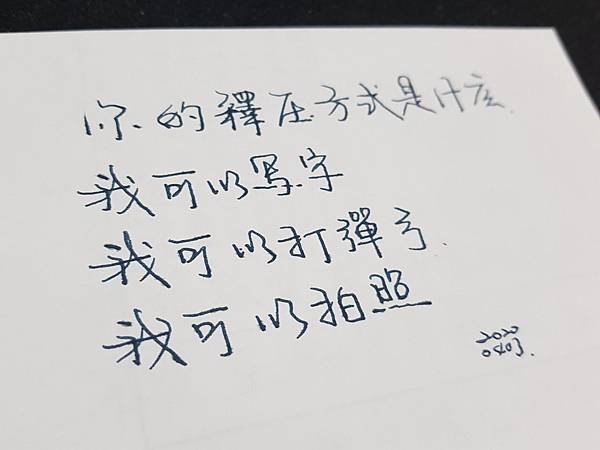 你的釋压方式是什么
我可以写字
我可以打彈弓.
我可以拍照
2020
0403.